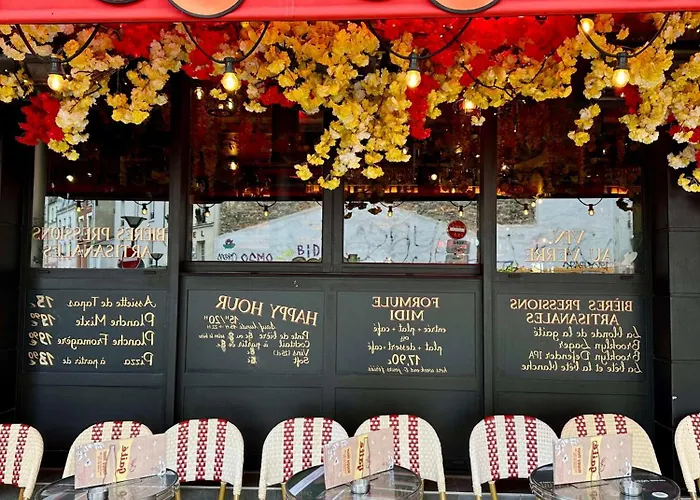 BIÈRES PRESSIONS
ARTISANALES
VIN
AU VERRE
Assiette de Tapas 15.
Planche Mixte 19.90€
Planche Fromagère 19.90€
Pizza à partir de 13.90€
HAPPY HOUR
15H/20H
Pinte de bière
Cocktail à partir de
Vins (25cl)
Soft
FORMULE
MIDI
entrée + plat + café
ou
plat + dessert + café
17.90€
hors week end & jours fériés
BIÈRES PRESSIONS
ARTISANALES
La blonde de la gaîté
Brooklyn Lager
Brooklyn Defender IPA
La bête et la bête blanche